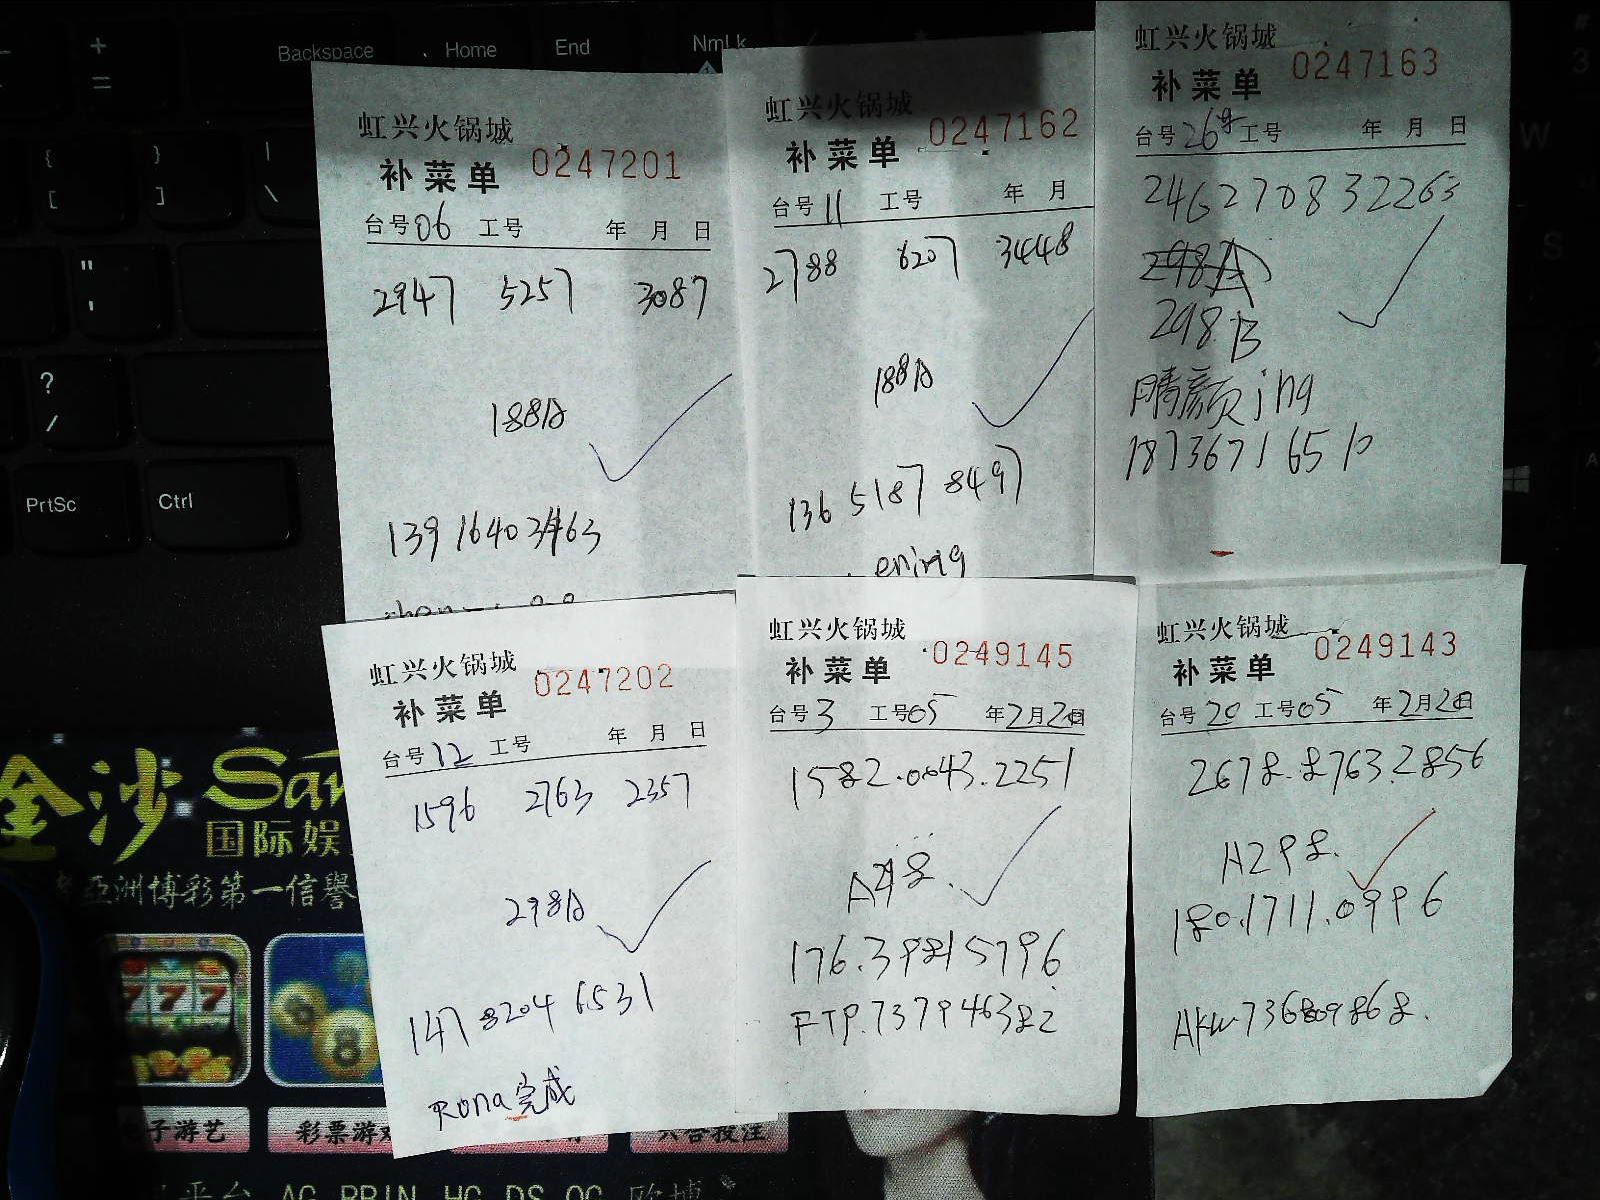 Backspace
Home
End
NmLk
PrtSc
Ctrl
虹兴火锅城
补菜单 0247201
台号06 工号 年 月 日
2947 5257 3087
188A
139 1640 3463
虹兴火锅城
补菜单 0247162
台号11 工号 年 月
2788 6207 3448
188A
136 5187 8497
虹兴火锅城
补菜单 0247163
台号26号 工号 年 月 日
246270832263
298B
晴颜jng
虹兴火锅城
补菜单 0247202
台号12 工号 年 月 日
1596 2763 2357
298A
147 8204 6531
Rona完成
虹兴火锅城
补菜单 0249145
台号3 工号05 年2月2日
1582.0643.2251
176.39815796
FTP.737946382
虹兴火锅城
补菜单 0249143
台号20 工号05 年2月2日
2678.8763.2856
A298.
180.1711.0996
金沙 San
国际娱
亞洲博彩第一信譽
子游艺
彩票游戏
平台 AG BBIN HG DS OG 欧博